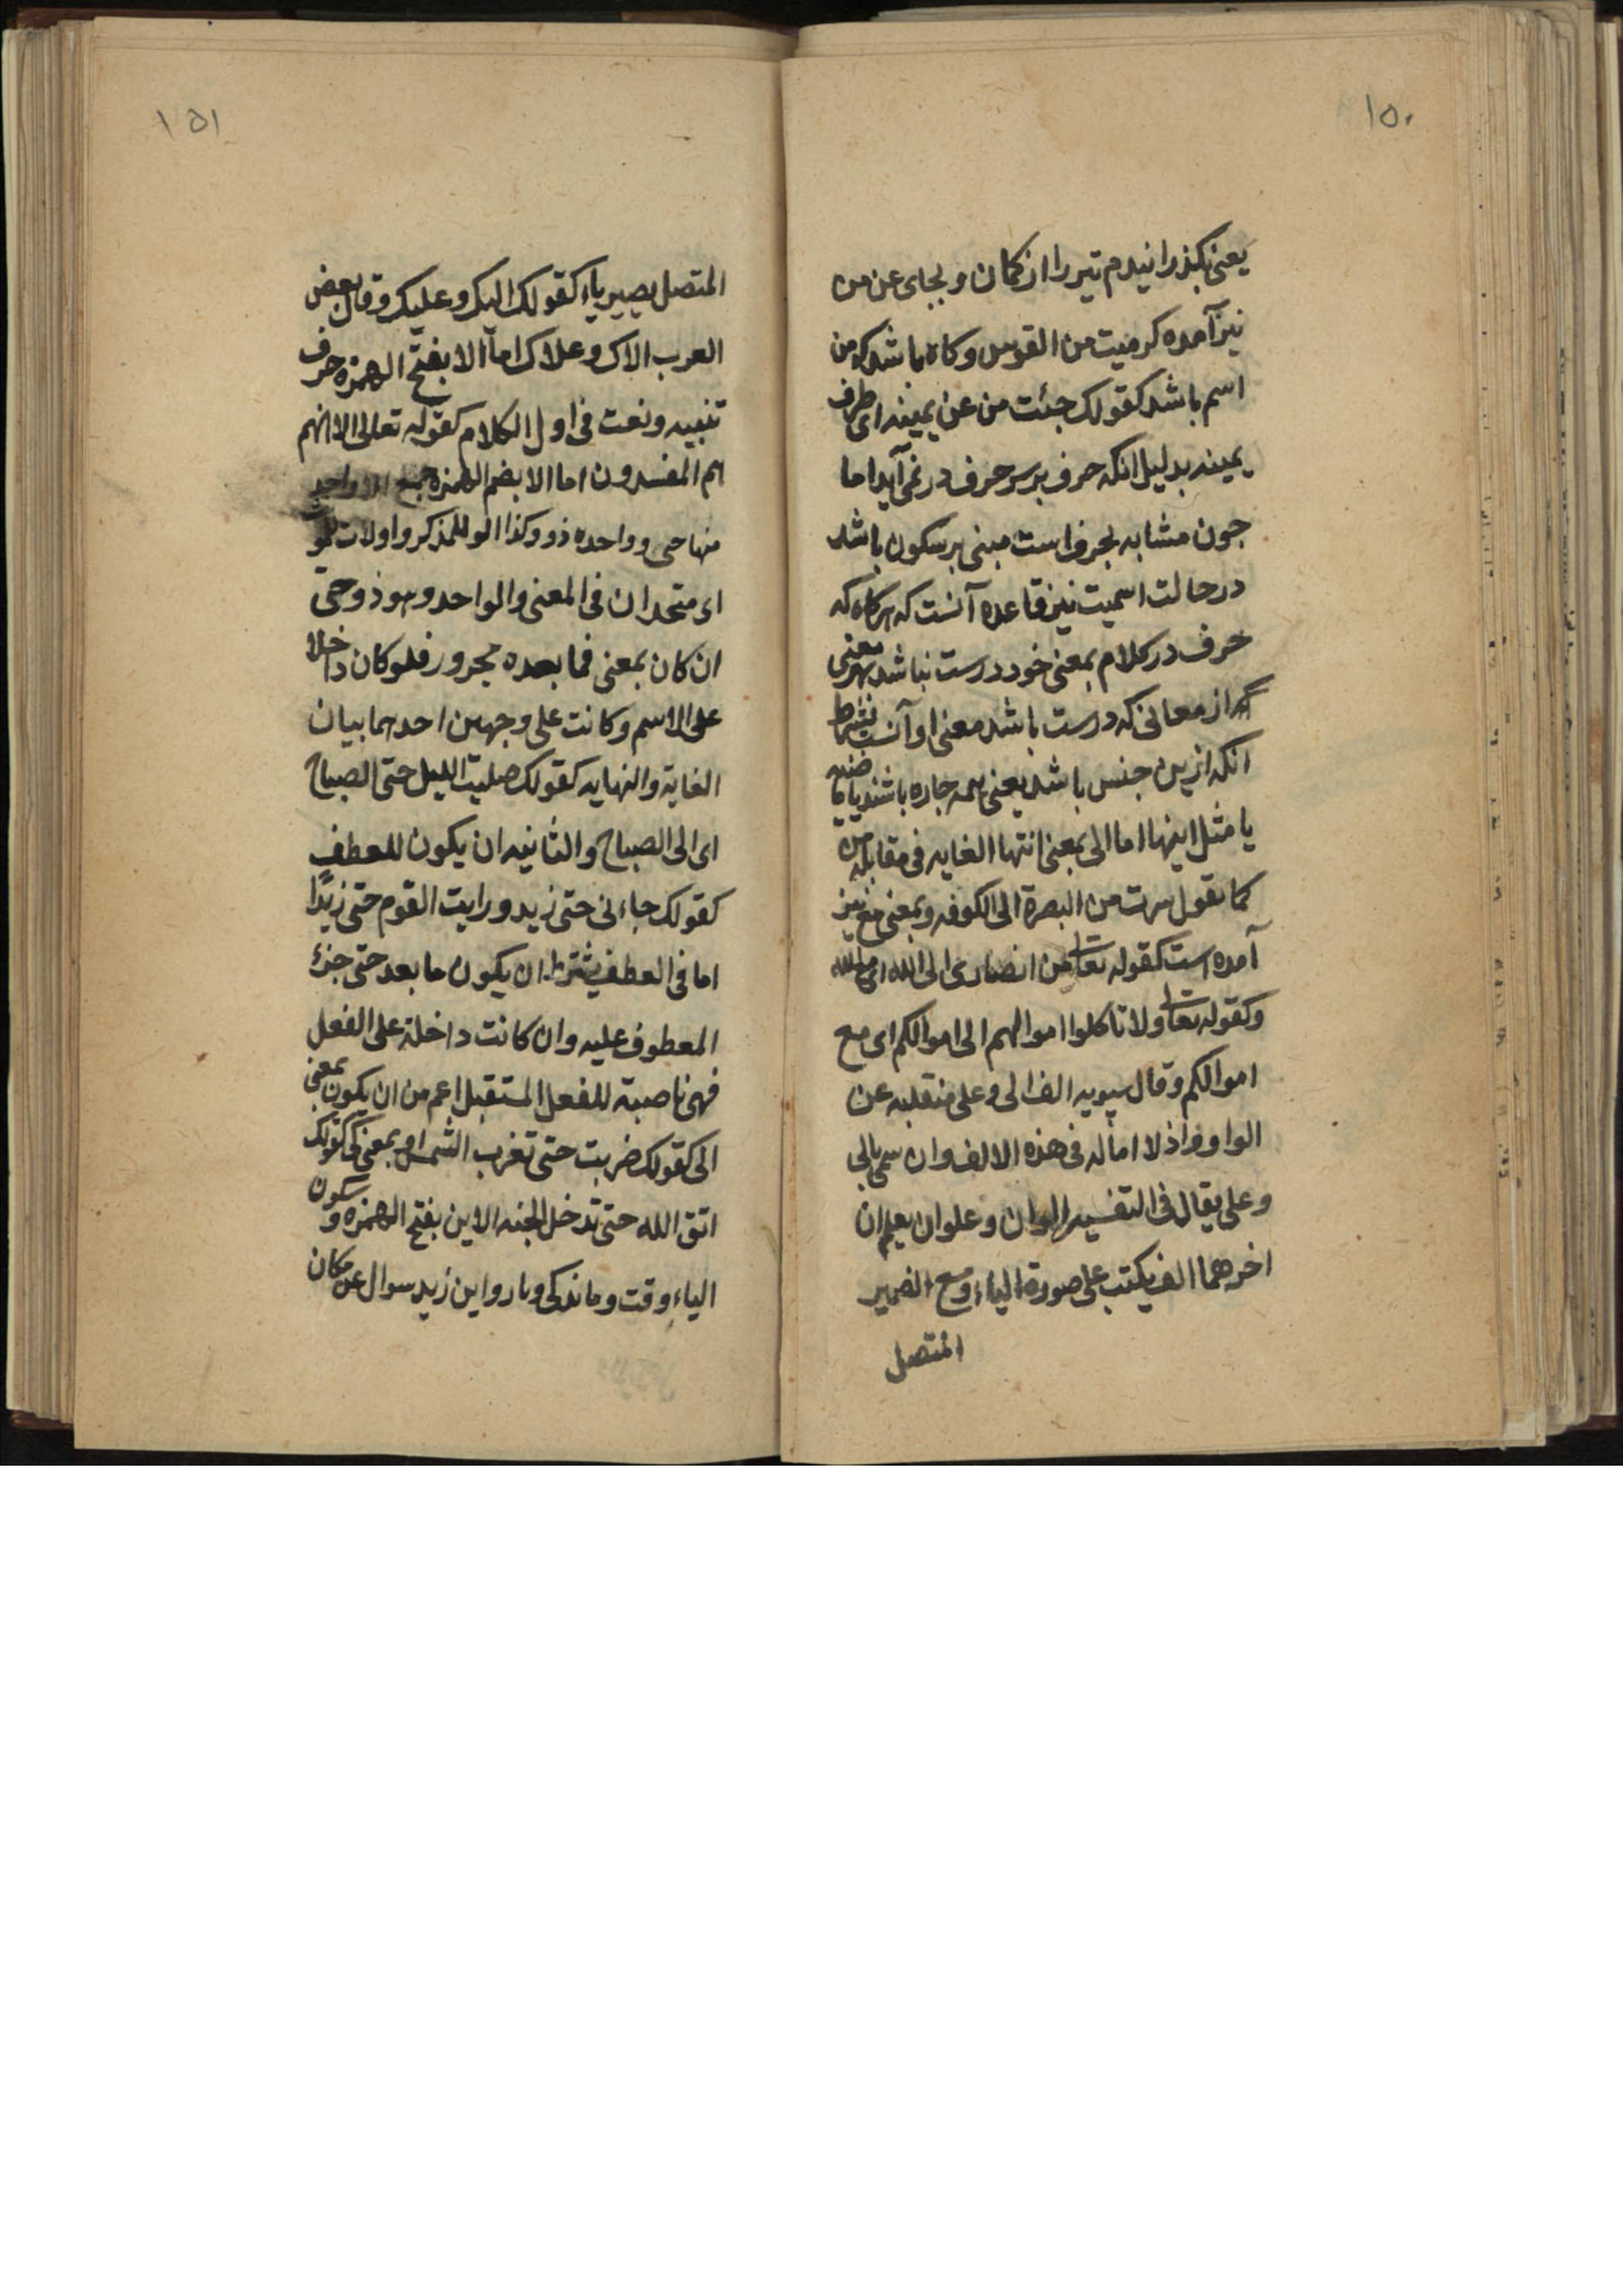 ۱۵۰
یعنی بگذرانیدم تیر را از کمان و بجای عن من
نیز آمده کرمیت من القوس و کاه باشد که من
اسم باشد کقولک جئت من عن یمینه ای طرف
یمینه بدلیل انکه حرف بر سر حرف در نمی آید اما
جون مشابه بحرف است مبنی بر سکون باشد
در حالت اسمیت نیز قاعده آنست که هرکاه که
حرف در کلام بمعنی خود درست نباشد بهر معنی
از معانی که درست باشد معنی او آنست بشرط
انکه ازین جنس باشد یعنی همه جاره باشند یا
یا مثل اینها اما الی بمعنی انتها الغایه فی مقابله من
کما تقول سرت من البصرة الی الکوفه و بمعنی مع نیز
آمده است کقوله تعالی من انصاری الی الله ای مع الله
و کقوله تعالی ولا تاکلوا اموالهم الی اموالکم ای مع
اموالکم و قال سیبویه الف الی و علی منقلبه عن
الواو اذ لا اماله فی هذه الالف وان سمی بالی
و علی یقال فی التثنیه الوان و علوان یعلم ان
اخرهما الف یکتب علی صورة الیاء و مع الضمیر
المتصل
۱۵۱
المتصل یصیر یاء کقولک الیک و علیک و قال بعض
العرب الاک و علاک اما الا بفتح الهمزه حرف
تنبیه و نعت فی اول الکلام کقوله تعالی الا انهم
هم المفسدون اما الا بضم الهمزه جمع لا واحد
منها حی و واحده ذو و کذا الو للمذکر و اولات
ای متحدان فی المعنی والواحد و هو ذو حتی
ان کان بمعنی فما بعده مجرور فلو کان داخلا
علی الاسم و کانت علی وجهین احدهما بیان
الغایة والنهایه کقولک صلیت اللیل حتی الصباح
ای الی الصباح والثانیه ان یکون للعطف
کقولک جاءنی حتی زید و رایت القوم حتی زیدًا
اما فی العطف یشترط ان یکون ما بعد حتی جزء
المعطوف علیه و ان کانت داخلة علی الفعل
فهی ناصبة للفعل المستقبل اعم من ان یکون بمعنی
الی کقولک ضربت حتی تغرب الشمس او بمعنی کی کقولک
اتق الله حتی تدخل الجنه الاین بفتح الهمزه و سکون
الیاء وقت و ماندکی و مار و این زید سوال عن مکان